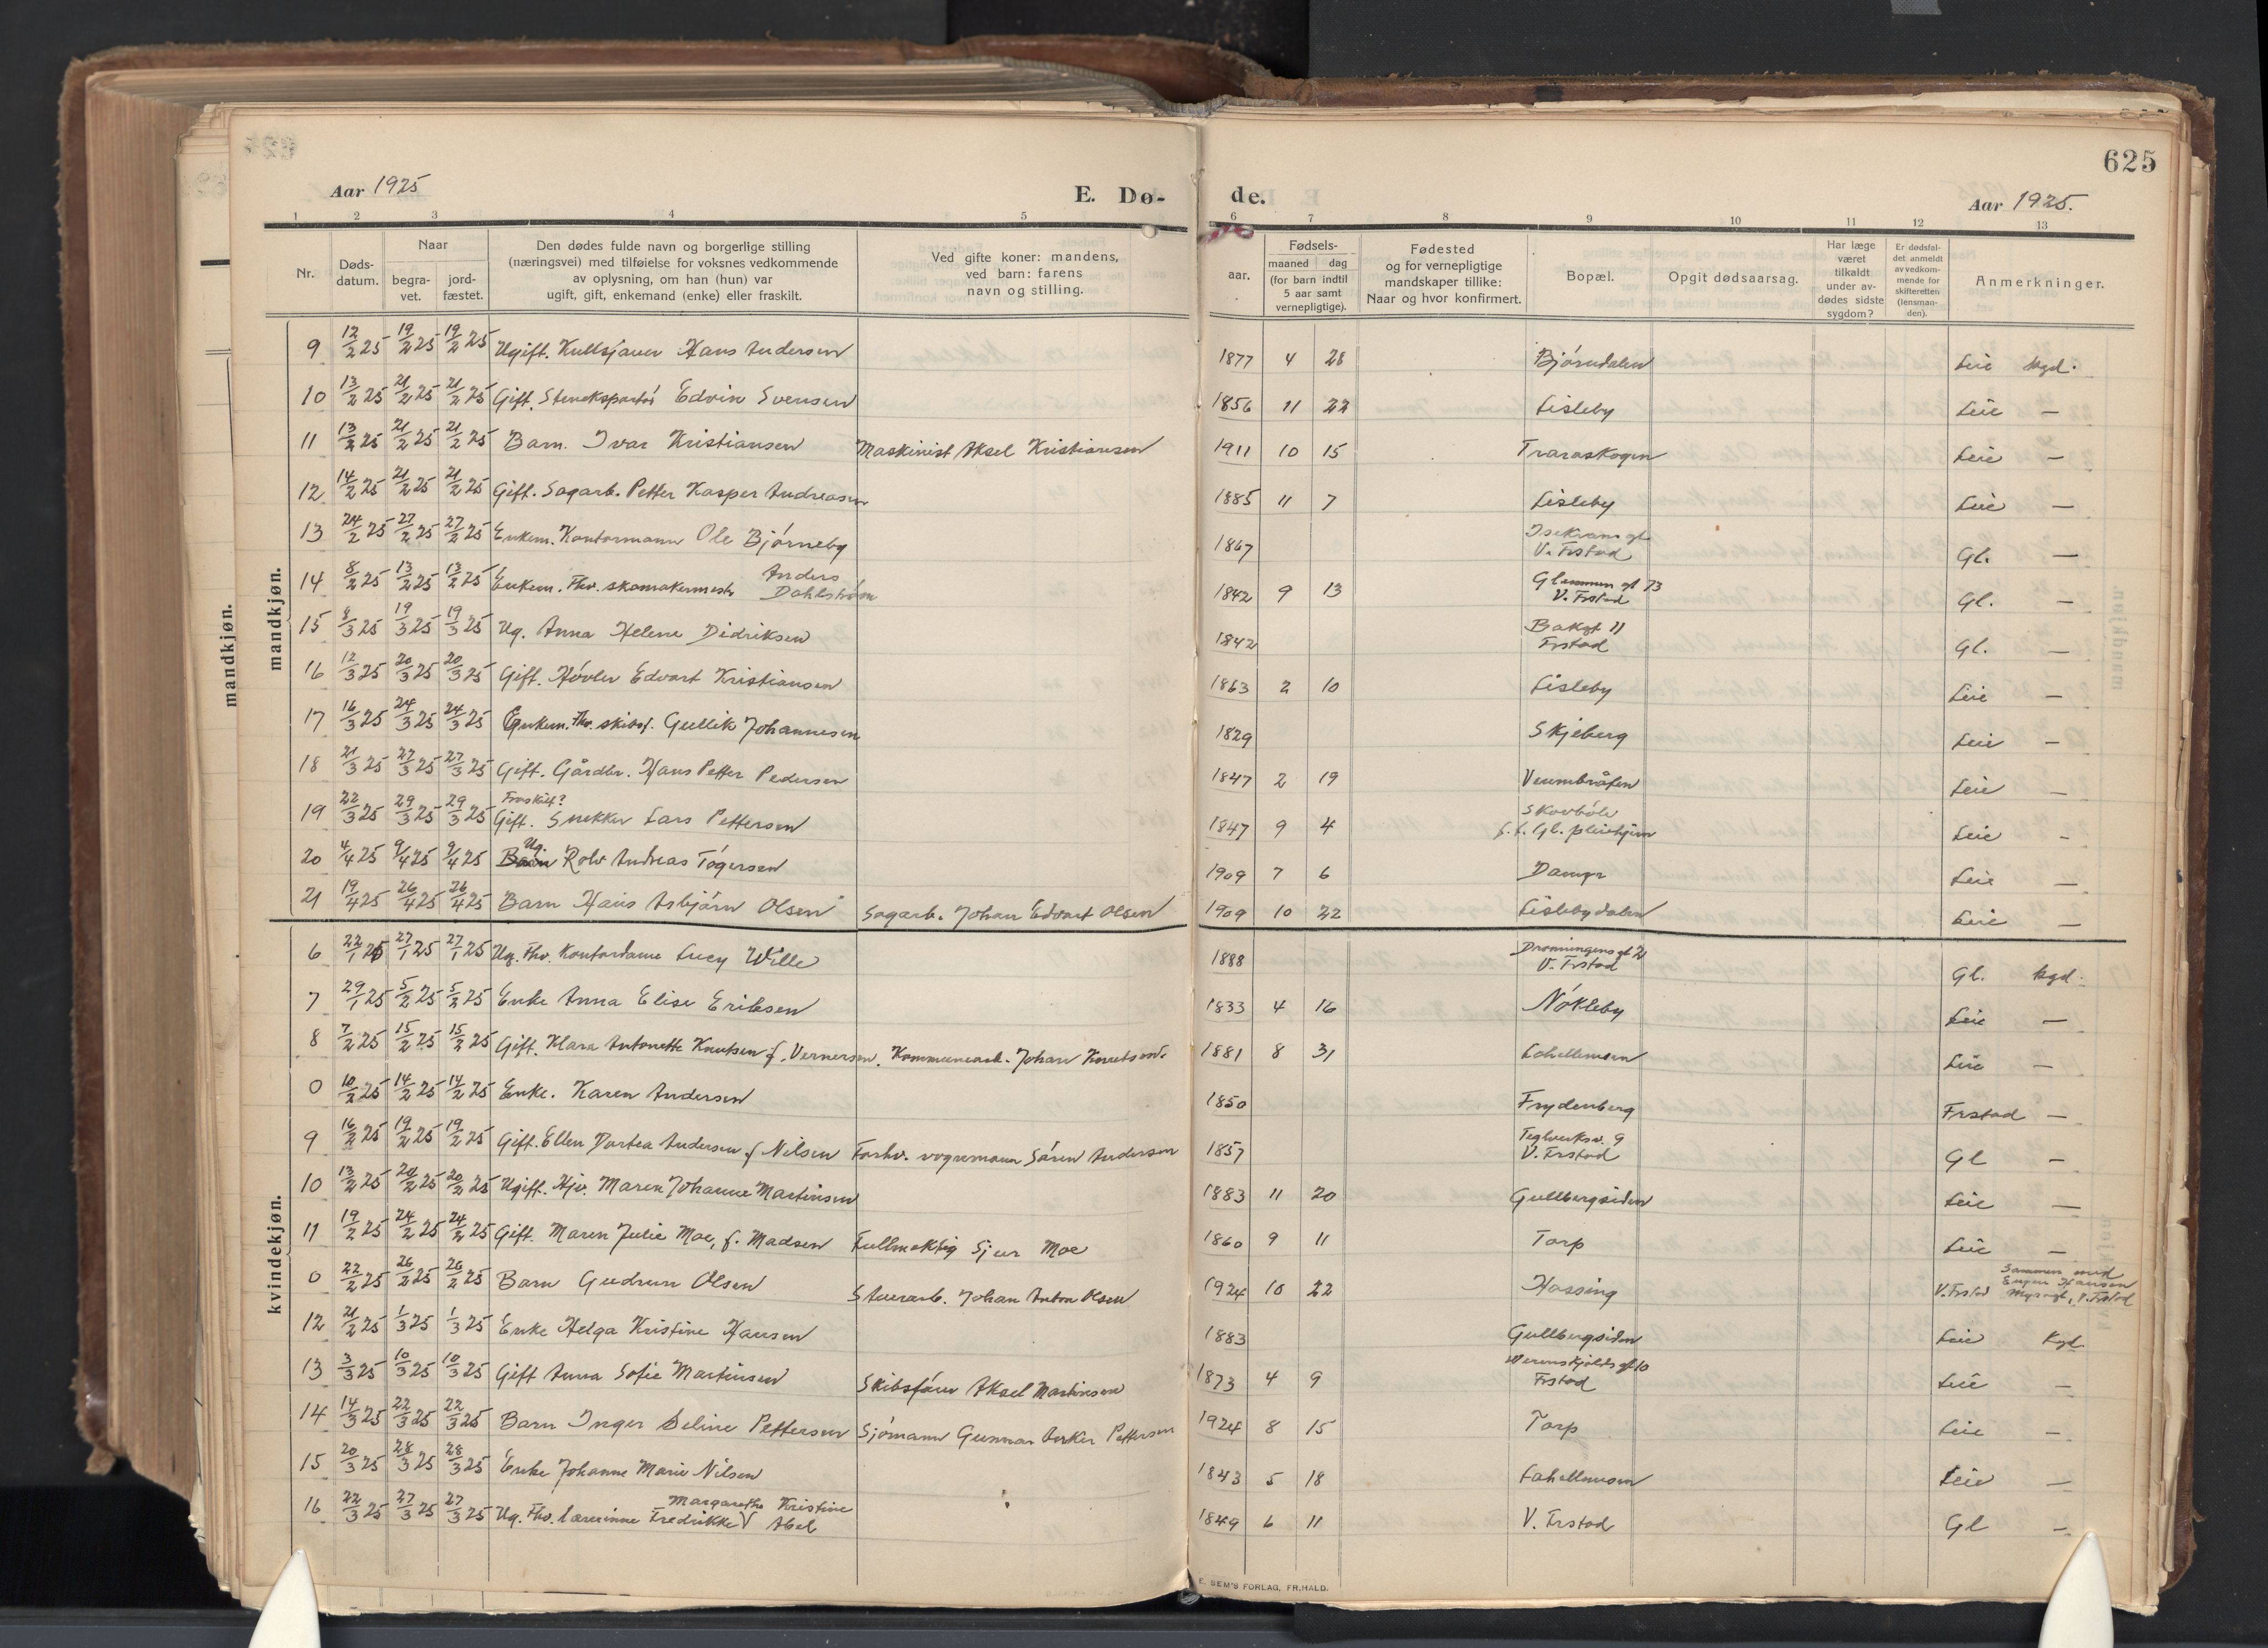 625
Aar 1925
E. Dø-
de.
Aar 1925.
1 2 3 4 5 6 7 8 9 10 11 12 13
Nr.
Døds-
datum.
Naar
begra-
vet.
jord-
fæstet.
Den dødes fulde navn og borgerlige stilling
(næringsvei) med tilføielse for voksnes vedkommende
av oplysning, om han (hun) var
ugift, gift, enkemand (enke) eller fraskilt.
Ved gifte koner: mandens,
ved barn: farens
navn og stilling.
aar.
Fødsels-
maaned dag
(for barn indtil
5 aar samt
vernepligtige).
Fødested
og for vernepligtige
mandskaper tillike:
Naar og hvor konfirmert.
Bopæl.
Opgit dødsaarsag.
Har læge
været
tilkaldt
under av-
dødes sidste
sygdom?
Er dødsfal-
det anmeldt
av vedkom-
mende for
skifteretten
(lensman-
den).
Anmerkninger.
mandkjøn.
mandkjøn.
9 12/2 25 19/2 25 19/2 25 Ugift. Kullsjauer Hans Andersen 1877 4 28 Bjørndalen Leie kgd.
10 13/2 25 21/2 25 21/2 25 Gift. Edvin Svensen 1856 11 22 Lisleby Leie —
11 13/2 25 21/2 25 21/2 25 Barn. Ivar Kristiansen Maskinist Aksel Kristiansen 1911 10 15 Traraskogen Leie —
12 14/2 25 21/2 25 21/2 25 Gift. Sagarb. Petter Kasper Andreasen 1885 11 7 Lisleby Leie —
13 24/2 25 27/2 25 27/2 25 Enkem. Kontormann Ole Bjørneby 1867 Isekrans gt
V. Frstad Gl. —
14 8/2 25 13/2 25 13/2 25 Enkem. Fhv. skomakermestr Anders
Dahlstrøm 1842 9 13 Glemmen gt 73
V. Frstad Gl. —
15 8/3 25 19/3 25 19/3 25 Ug. Anna Helene Didriksen 1842 Bakgt 11
Frstad Gl. —
16 12/3 25 20/3 25 20/3 25 Gift. Høvler Edvart Kristiansen 1863 2 10 Lisleby Leie —
17 16/3 25 24/3 25 24/3 25 Enkem. Fhv. skibsf. Gullik Johannesen 1829 Skjeberg Leie —
18 21/3 25 27/3 25 27/3 25 Gift. Gårdbr. Hans Petter Pedersen 1847 2 19 Veumbråten Leie —
Fraskilt?
19 22/3 25 29/3 25 29/3 25 Gift. Snekker Lars Pettersen 1847 9 4 Skovbøle
f. t. Gl. pleiehjem Leie -
Ug.
20 4/4 25 9/4 25 9/4 25 Barn Rolv Andreas Tøgersen 1909 7 6 Damyr Leie —
21 19/4 25 26/4 25 26/4 25 Barn Hans Asbjørn Olsen Sagarb. Johan Edvart Olsen 1909 10 22 Lislebydalen Leie —
kvindekjøn.
6 22/1 25 27/1 25 27/1 25 Ug. Fhv. Kontordame Lucy Wille 1888 Dronningens gt 21
V. Frstad Gl. kgd.
7 29/1 25 5/2 25 5/2 25 Enke Anna Elise Eriksen 1833 4 16 Nøkleby Leie —
8 7/2 25 15/2 25 15/2 25 Gift. Klara Antonette Knutsen f. Vernersen. Kommunearb. Johan Knutsen. 1881 8 31 Lahellmoen Leie —
0 10/2 25 14/2 25 14/2 25 Enke. Karen Andersen 1850 Frydenberg Frstad —
9 16/2 25 19/2 25 19/2 25 Gift. Ellen Dortea Andersen f Nilsen Forhv. vognmann Søren Andersen 1857 Teglverksv. 9
V. Frstad Gl —
10 13/2 25 20/2 25 20/2 25 Ugift. Hjv. Maren Johanne Martinsen 1883 11 20 Gullbergsiden Leie —
11 19/2 25 24/2 25 24/2 25 Gift. Maren Julie Moe, f. Madsen Fullmektig Sjur Moe 1860 9 11 Torp Leie —
0 22/2 25 26/2 25 26/2 25 Barn Gudrun Olsen Stuerarb. Johan Anton Olsen 1924 10 22 Hassing V. Frstad Sammen med
Eugen Hansen
Myragt, V. Frstad
12 21/2 25 1/3 25 1/3 25 Enke Helga Kristine Hansen 1883 Gullbergsiden Leie Kgd.
13 3/3 25 10/3 25 10/3 25 Gift Anna Sofie Martinsen Skibsfører Aksel Martinsen 1873 4 9 Werenskjolds gt 10
Frstad Leie —
14 14/3 25 22/3 25 22/3 25 Barn Inger Seline Pettersen Sjømann Gunnar Anker Pettersen 1924 8 15 Torp Leie —
15 20/3 25 28/3 25 28/3 25 Enke Johanne Marie Nilsen 1843 5 18 Lahellmoen Leie —
16 22/3 25 27/3 25 27/3 25 Ug. Fhv. lærerinne Fredrikke Margarethe Kristine
Abel 1849 6 11 V. Frstad Gl —
E. SEM'S FORLAG, FR.HALD.